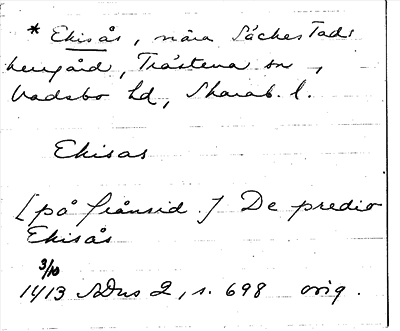 * Ekisås, nära Säckestads
herrgård, Trästena sn,
Vadsbo hd, Skarab. l.
Ekisas
[på frånsid.] De predio
Ekisås
3/10
1413 SDns 2, s. 698 orig.